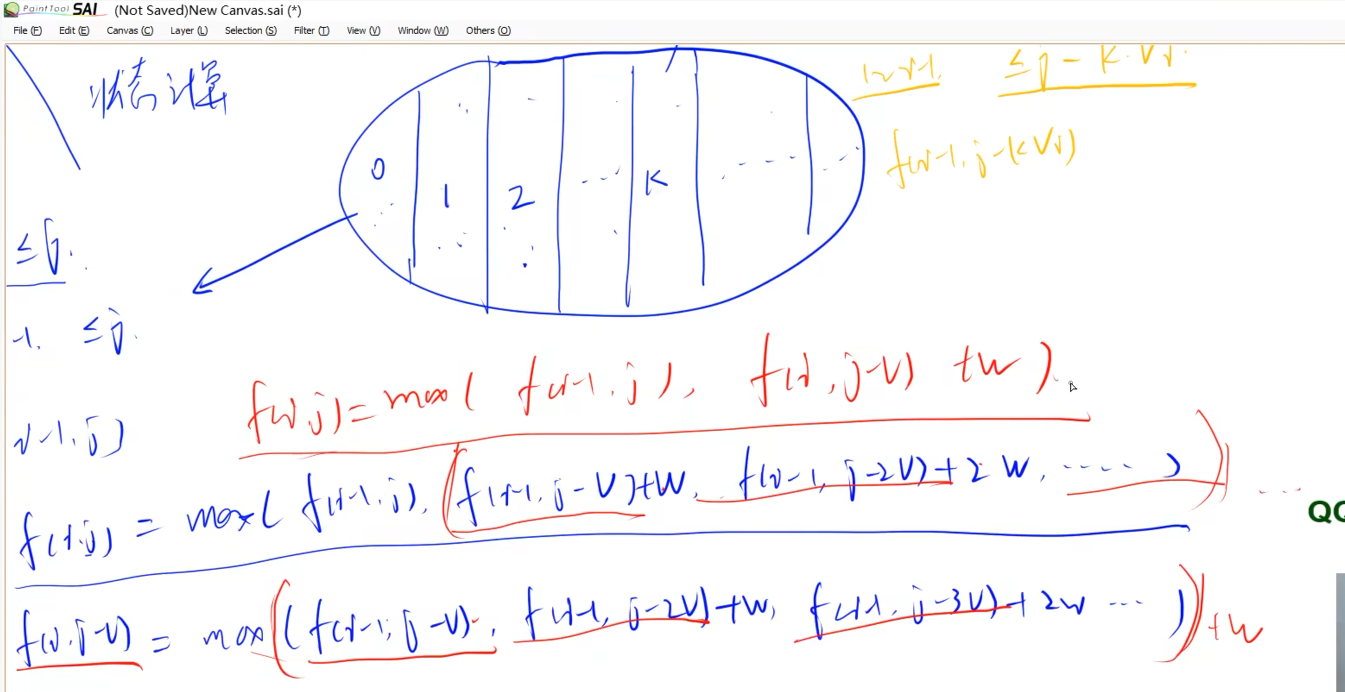 PaintTool SAI (Not Saved)New Canvas.sai (*)
File (F) Edit (E) Canvas (C) Layer (L) Selection (S) Filter (T) View (V) Window (W) Others (O)
状态计算
1~i-1. ≤j-k·Vi.
f(i-1, j-kVi)
0 1 2 ... k ....
≤j.
-1. ≤j.
i-1,j)
f(i,j)=max( f(i-1,j), f(i,j-v) +w).
f(i,j) = max( f(i-1,j), f(i-1,j-v)+w, f(i-1,j-2v)+2w, ..... ) ...
QQ
f(i,j-v) = max( f(i-1,j-v), f(i-1,j-2v)+w, f(i-1,j-3v)+2w ... ) +w